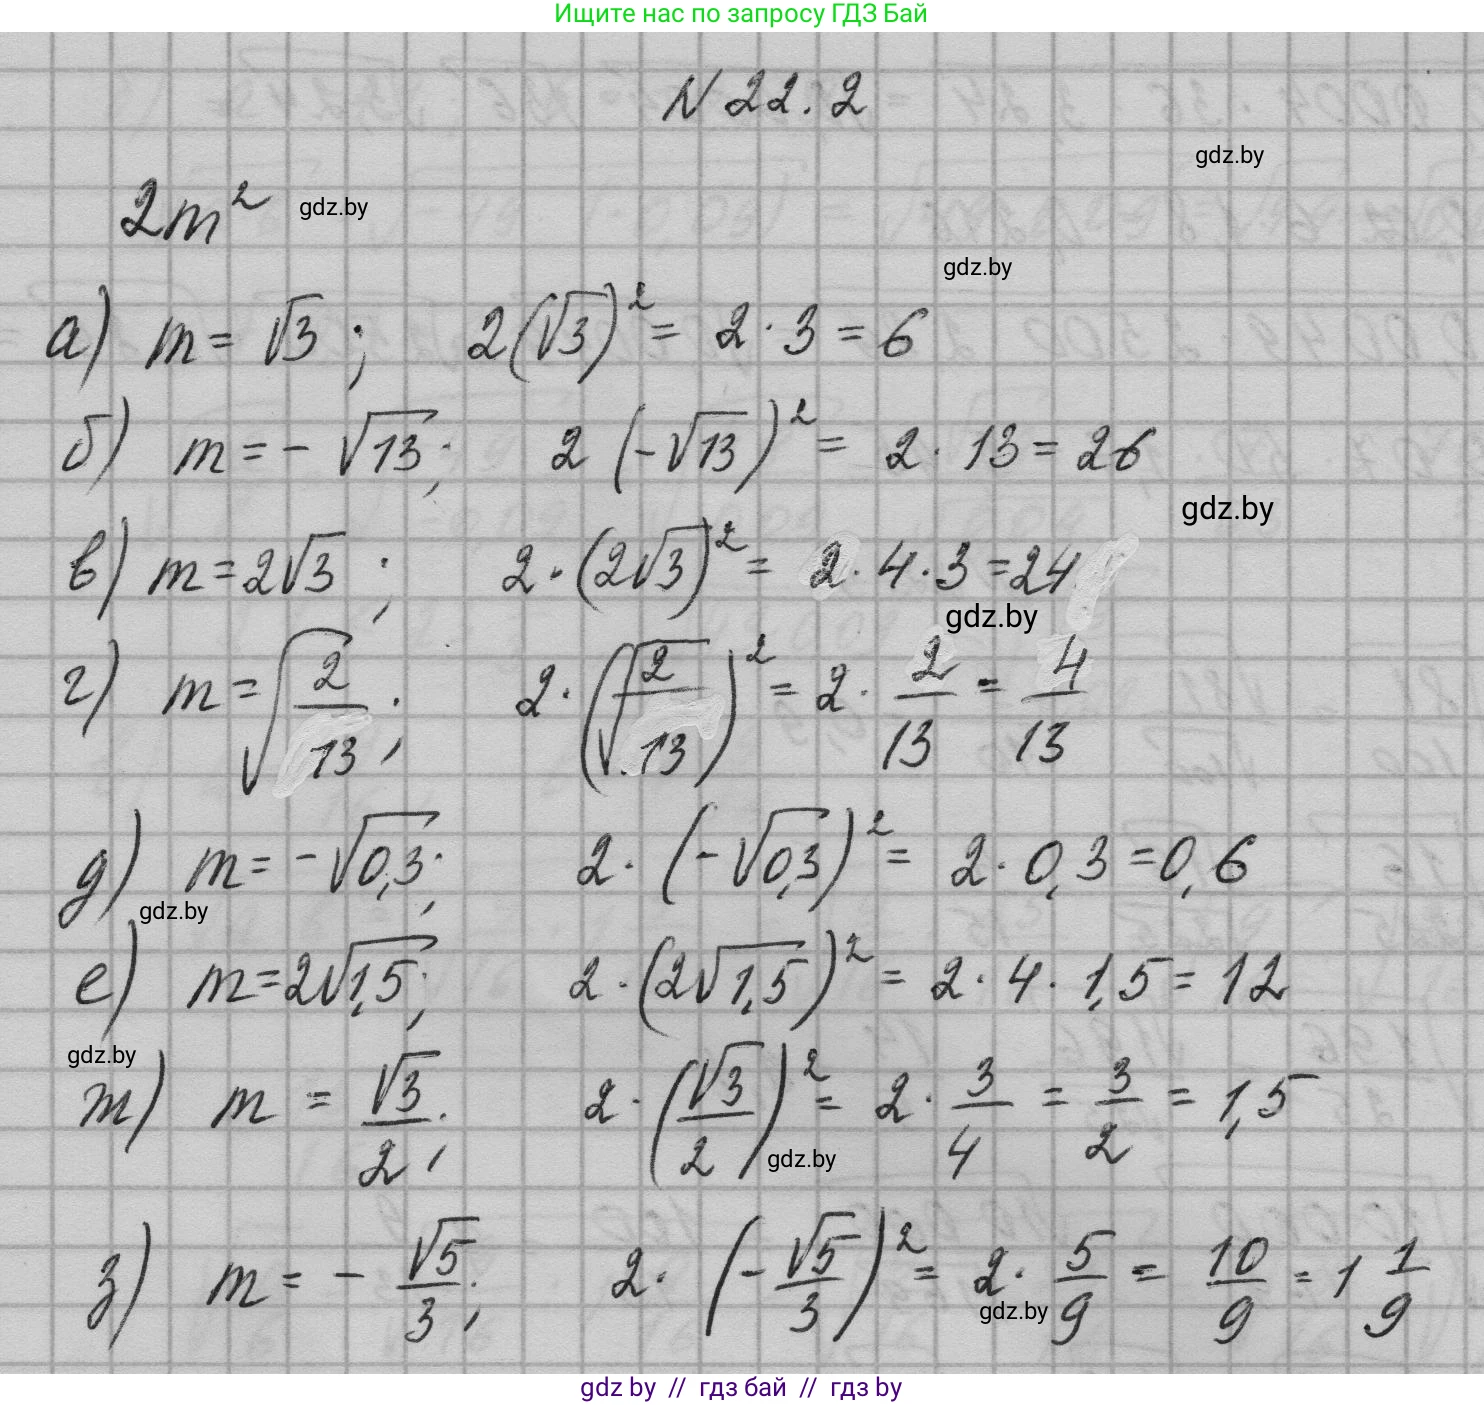 Ищите нас по запросу ГДЗ Бай
N 22.2
gdz.by
2m² gdz.by
gdz.by
а) m = √3 ; 2(√3)² = 2 · 3 = 6
б) m = - √13 ; 2 (-√13)² = 2 · 13 = 26
gdz.by
в) m = 2√3 ; 2 · (2√3)² = 2 · 4 · 3 = 24
gdz.by
г) m = √(2/13) ; 2 · (√(2/13))² = 2 · 2/13 = 4/13
д) m = -√0,3 ; 2 · (-√0,3)² = 2 · 0,3 = 0,6
gdz.by
е) m = 2√1,5 ; 2 · (2√1,5)² = 2 · 4 · 1,5 = 12
gdz.by
ж) m = √3/2 ; 2 · (√3/2)² = 2 · 3/4 = 3/2 = 1,5
gdz.by
з) m = - √5/3 ; 2 · (-√5/3)² = 2 · 5/9 = 10/9 = 1 1/9
gdz.by
gdz by // гдз бай // гдз by